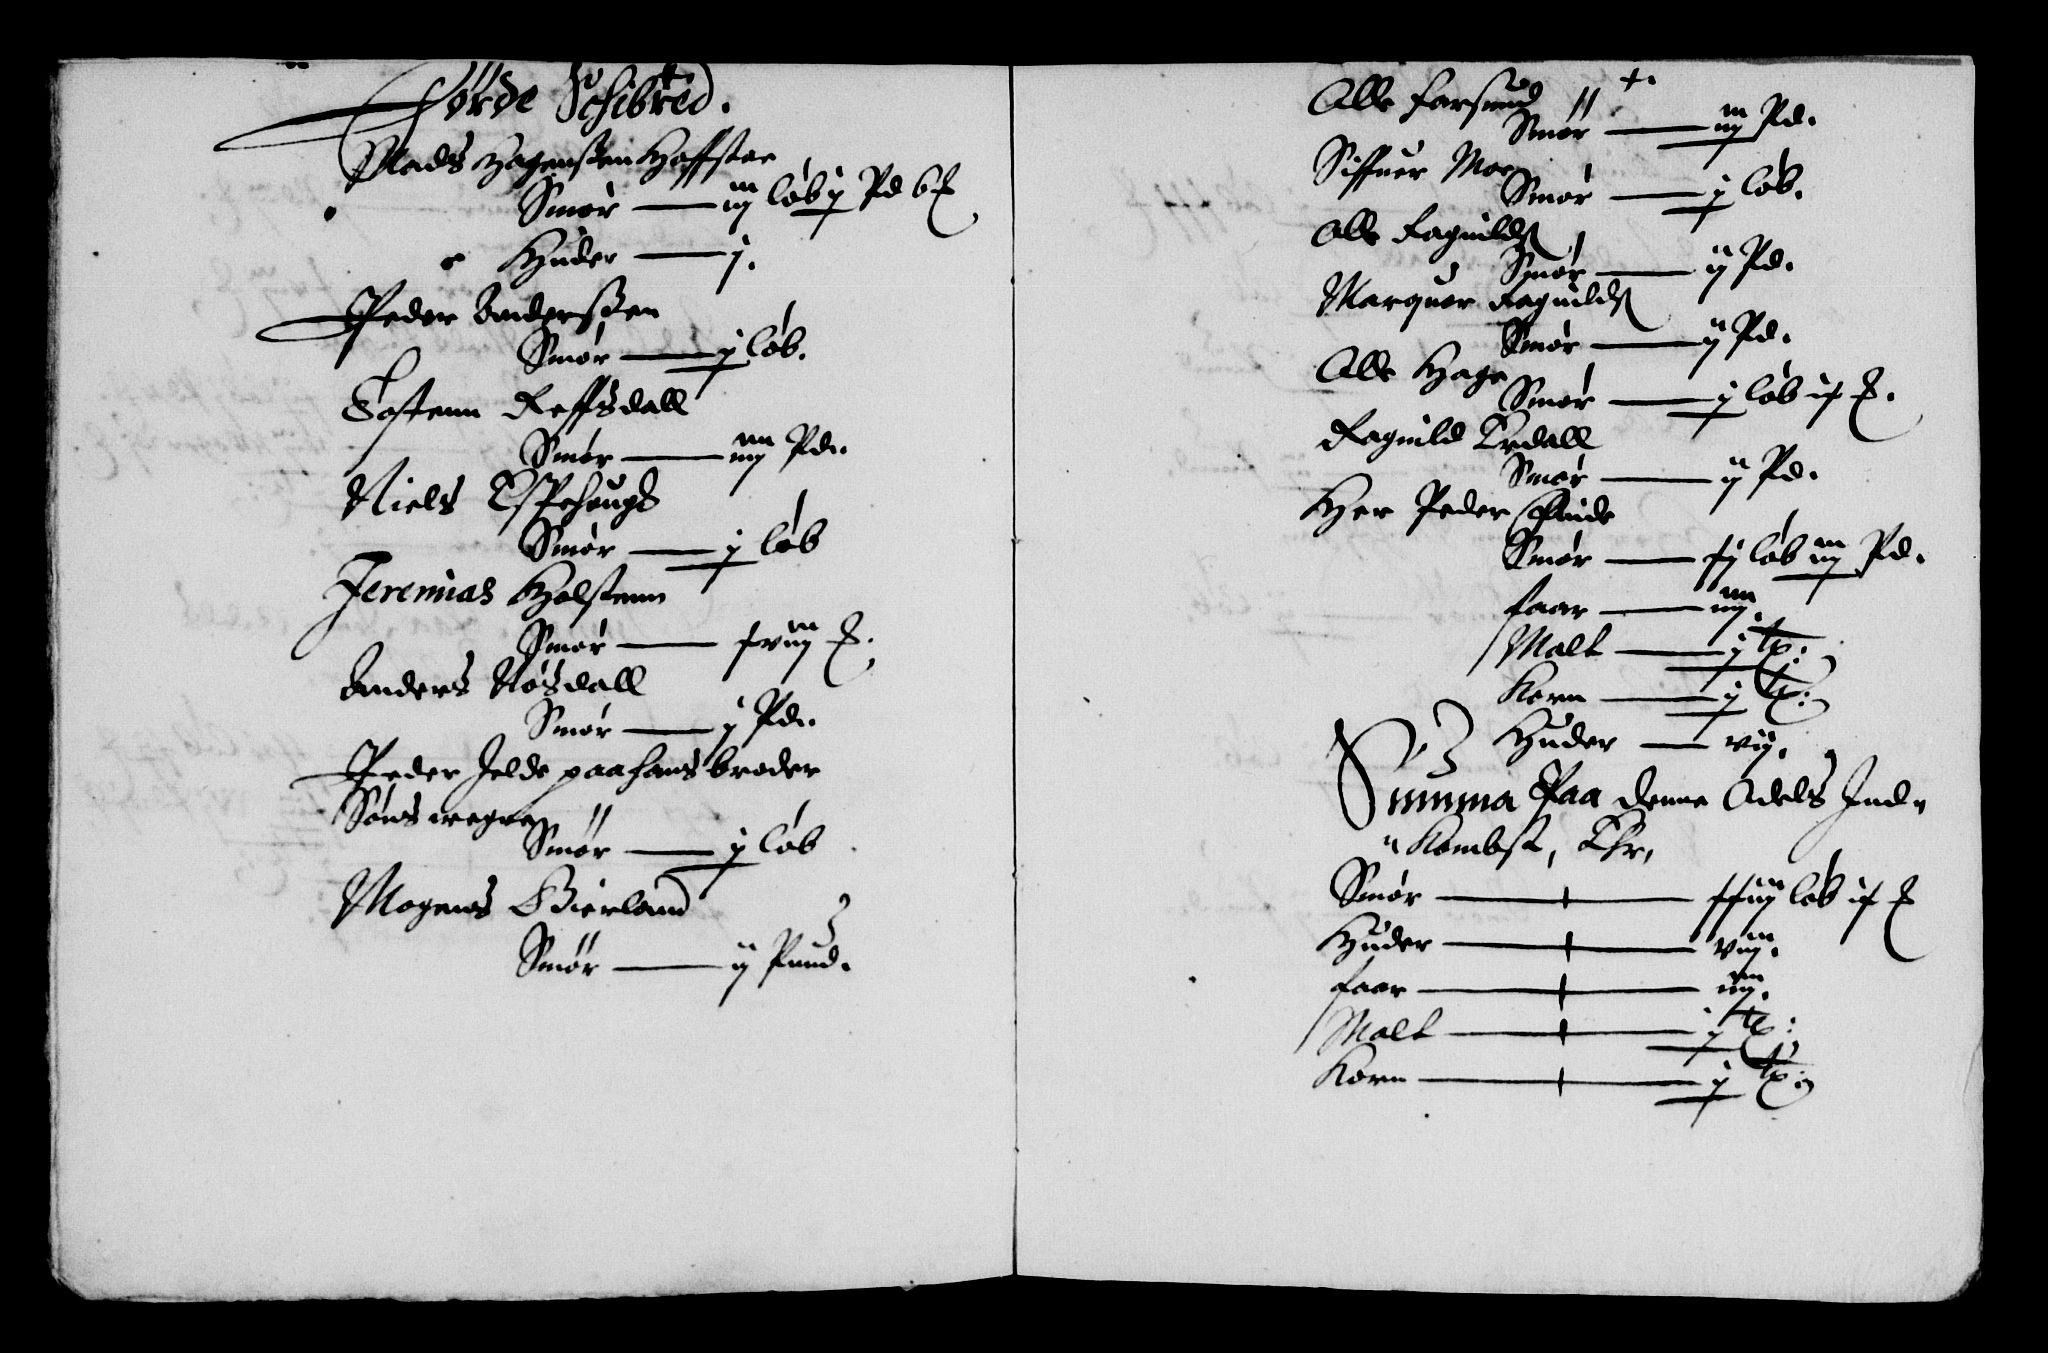 Førde Schibred.
Mads Hagenssen Hoffstae
Smør — iij løb j Pd 6 ℔
Huder — j.
Peder Anderssen
Smør — j løb.
Tostenn Reffsdall
Smør — iiij Pd.
Niels Espehougs
Smør — j løb
Jeremias Holstenn
Smør — xviij ℔.
Anders Nøsdall
Smør — j Pd.
Peder Jelde paa hans broder
Søns wegne
Smør — j løb
Mogens Bierland
Smør — ij Pund.
Olle Farsund
Smør — iij Pd.
Siffuer Moe
Smør — j løb.
Olle Raguilds
Smør — ij Pd.
Marquor Raguilds
Smør — ij Pd.
Olle Hage
Smør — j løb ix ℔.
Raguild Erdall
Smør — ij Pd.
Her Peder Finde
Smør — xj løb iij Pd.
faar — iiij.
Malt — j tø:
Korn — j tø:
Huder — vij.
Summa Paa denne Adels Ind-
Kombst, Ehr,
Smør — xxiij løb ix ℔
Huder — viij.
faar — iiij.
Malt — j tø:
Korn — j tø: